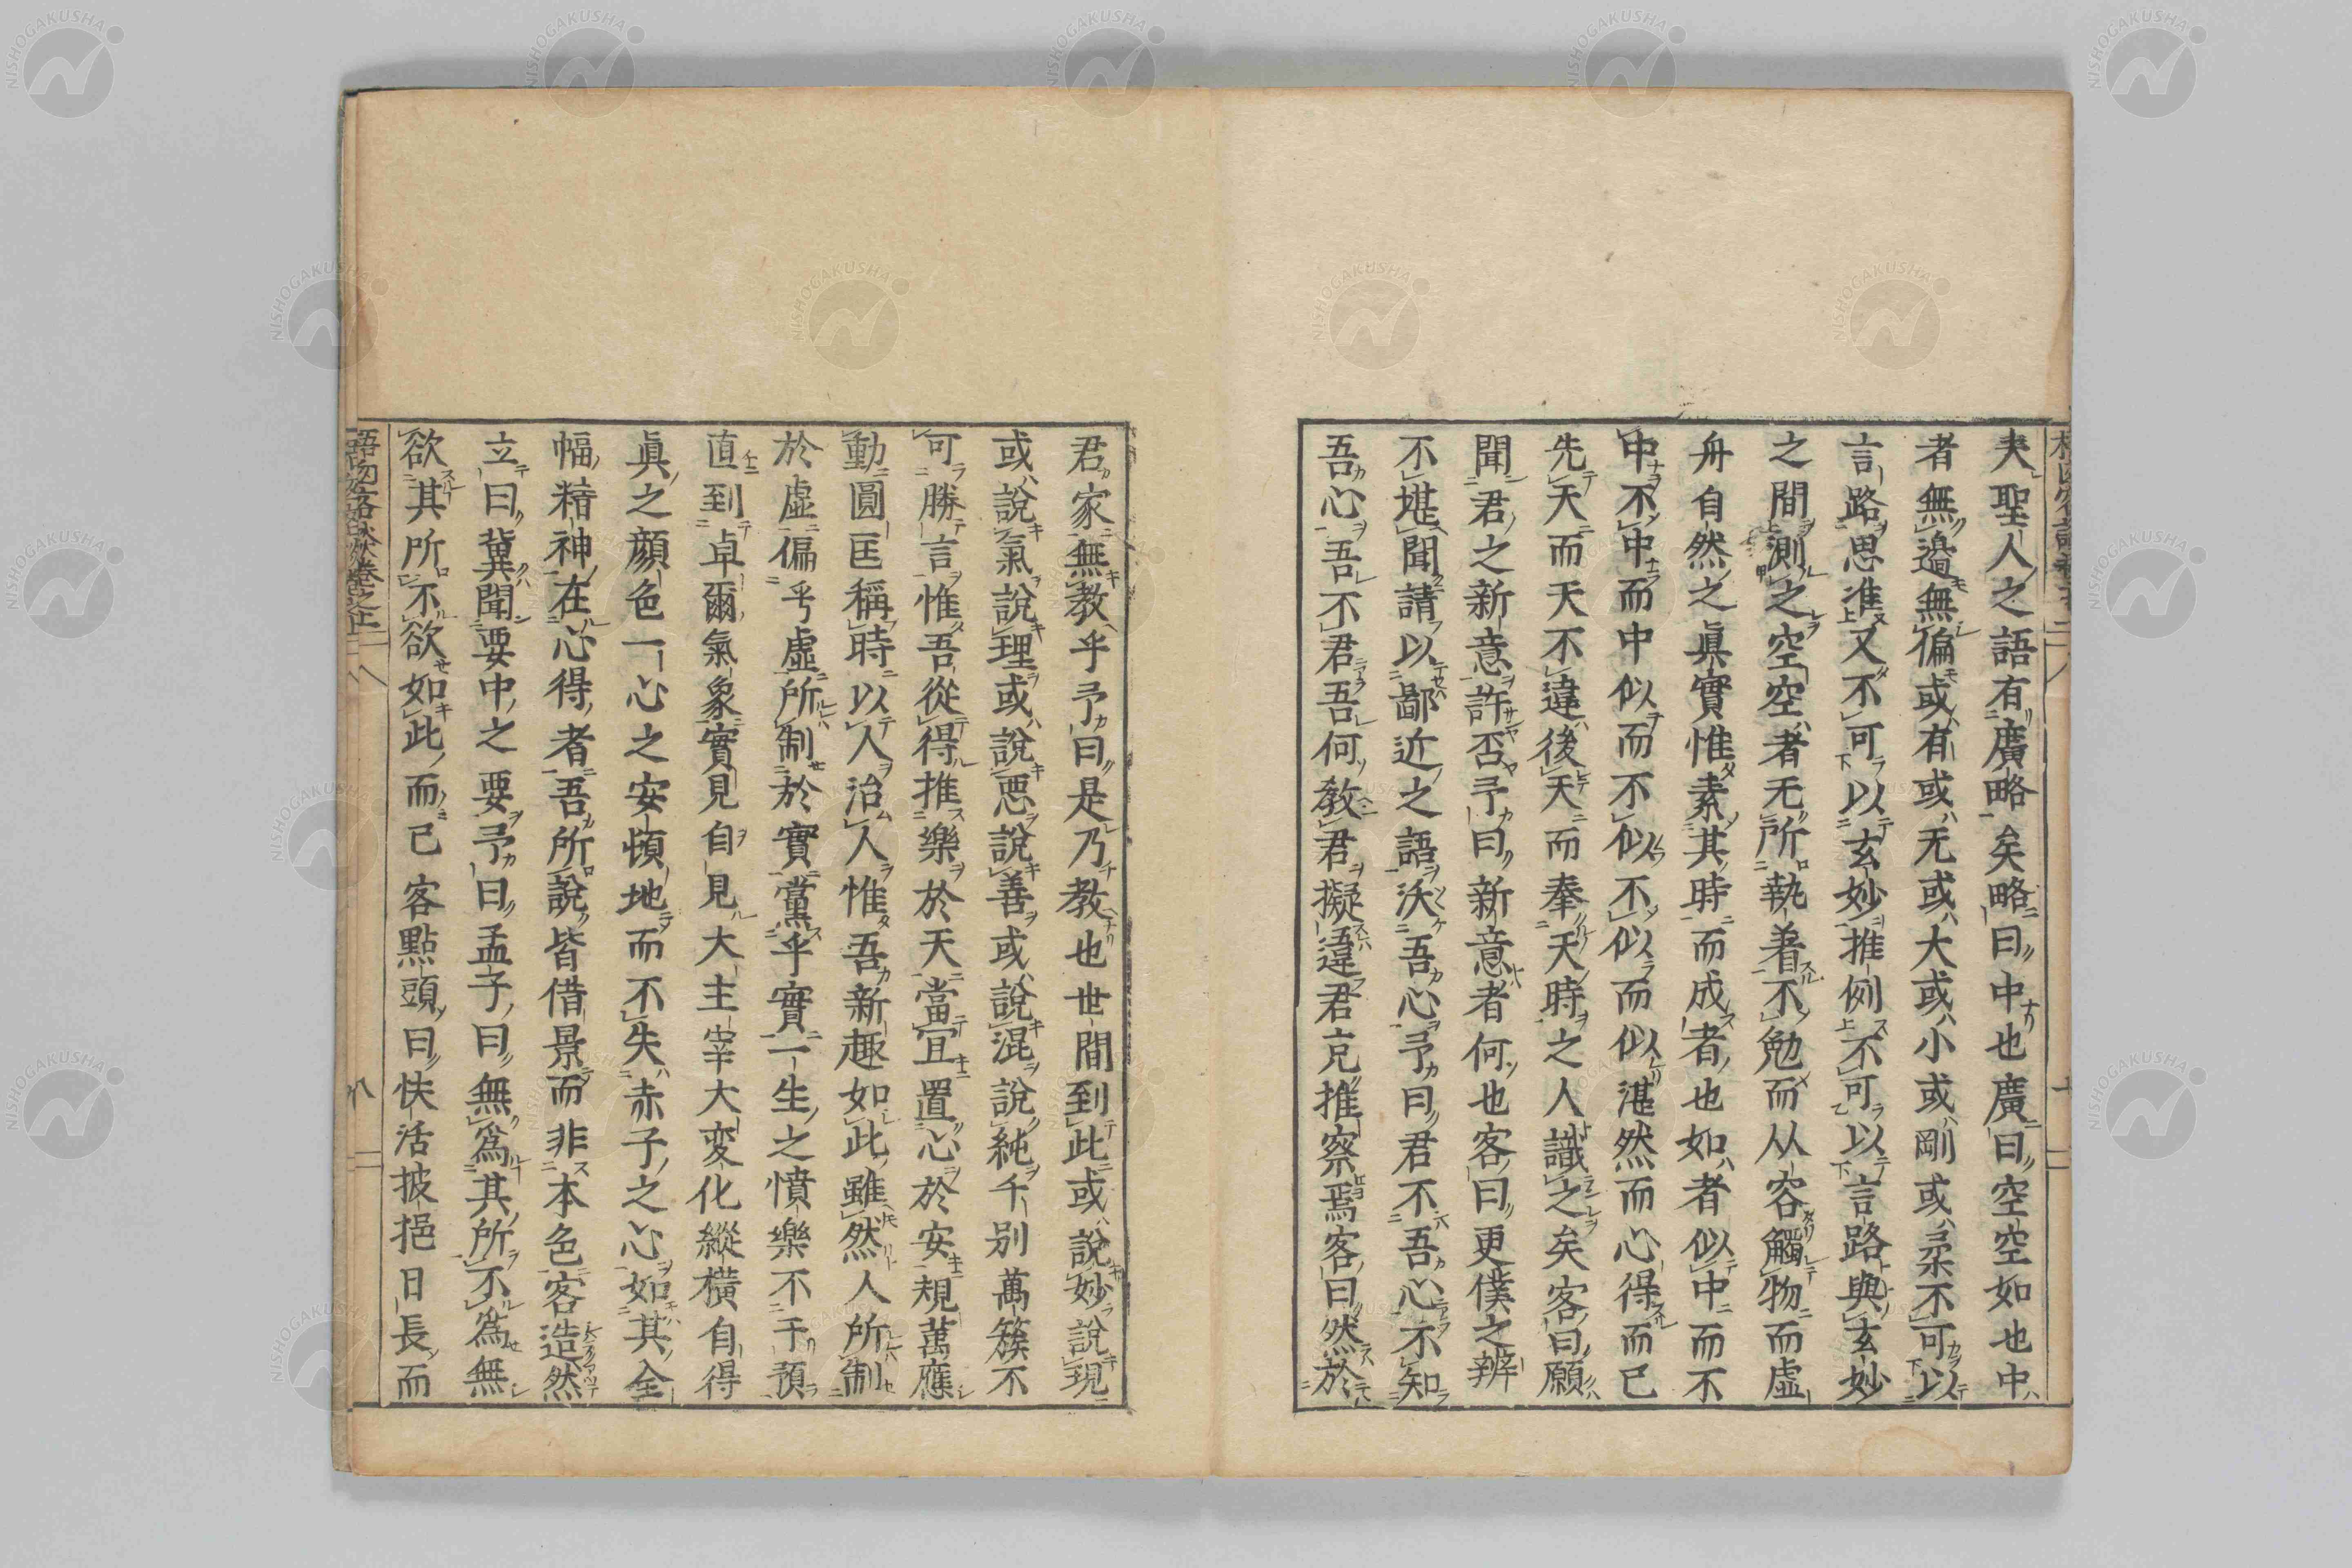 夫聖人之語有廣略矣略曰中也廣曰空空如也中
者無邉無偏或有或无或大或小或剛或柔不可以
言路思準又不可以玄妙推例不可以言路與玄妙
之間測之空空者无所執着不勉而从容觸物而虛
舟自然之眞實惟素其時而成者也如者似中而不
中不中而中似而不似不似而似湛然而心得而已
先天而天不違後天而奉天時之人識之矣客曰願
聞君之新意許否予曰新意者何也客曰更僕之辨
不堪聞請以鄙近之語沃吾心予曰君不吾心不知
吾心吾不君吾何教君擬違君克推察焉客曰然於
君家無教乎予曰是乃教也世間到此或說妙說現
或說氣說理或說惡說善或說混說純千別萬簇不
可勝言惟吾從得推樂於天當宜置心於安規萬應
動圓匡稱時以人治人惟吾新趣如此雖然人所制
於虛偏乎虛所制於實黨乎實一生之憤樂不干預
直到卓爾氣象實見自見大主宰大変化縱橫自得
眞之顏色一心之安頓地而不失赤子之心如其全
幅精神在心得者吾所說皆借景而非本色客造然
立曰冀聞要中之要予曰孟子曰無爲其所不爲無
欲其所不欲如此而已客點頭曰快活披挹日長而
NISHOGAKUSHA